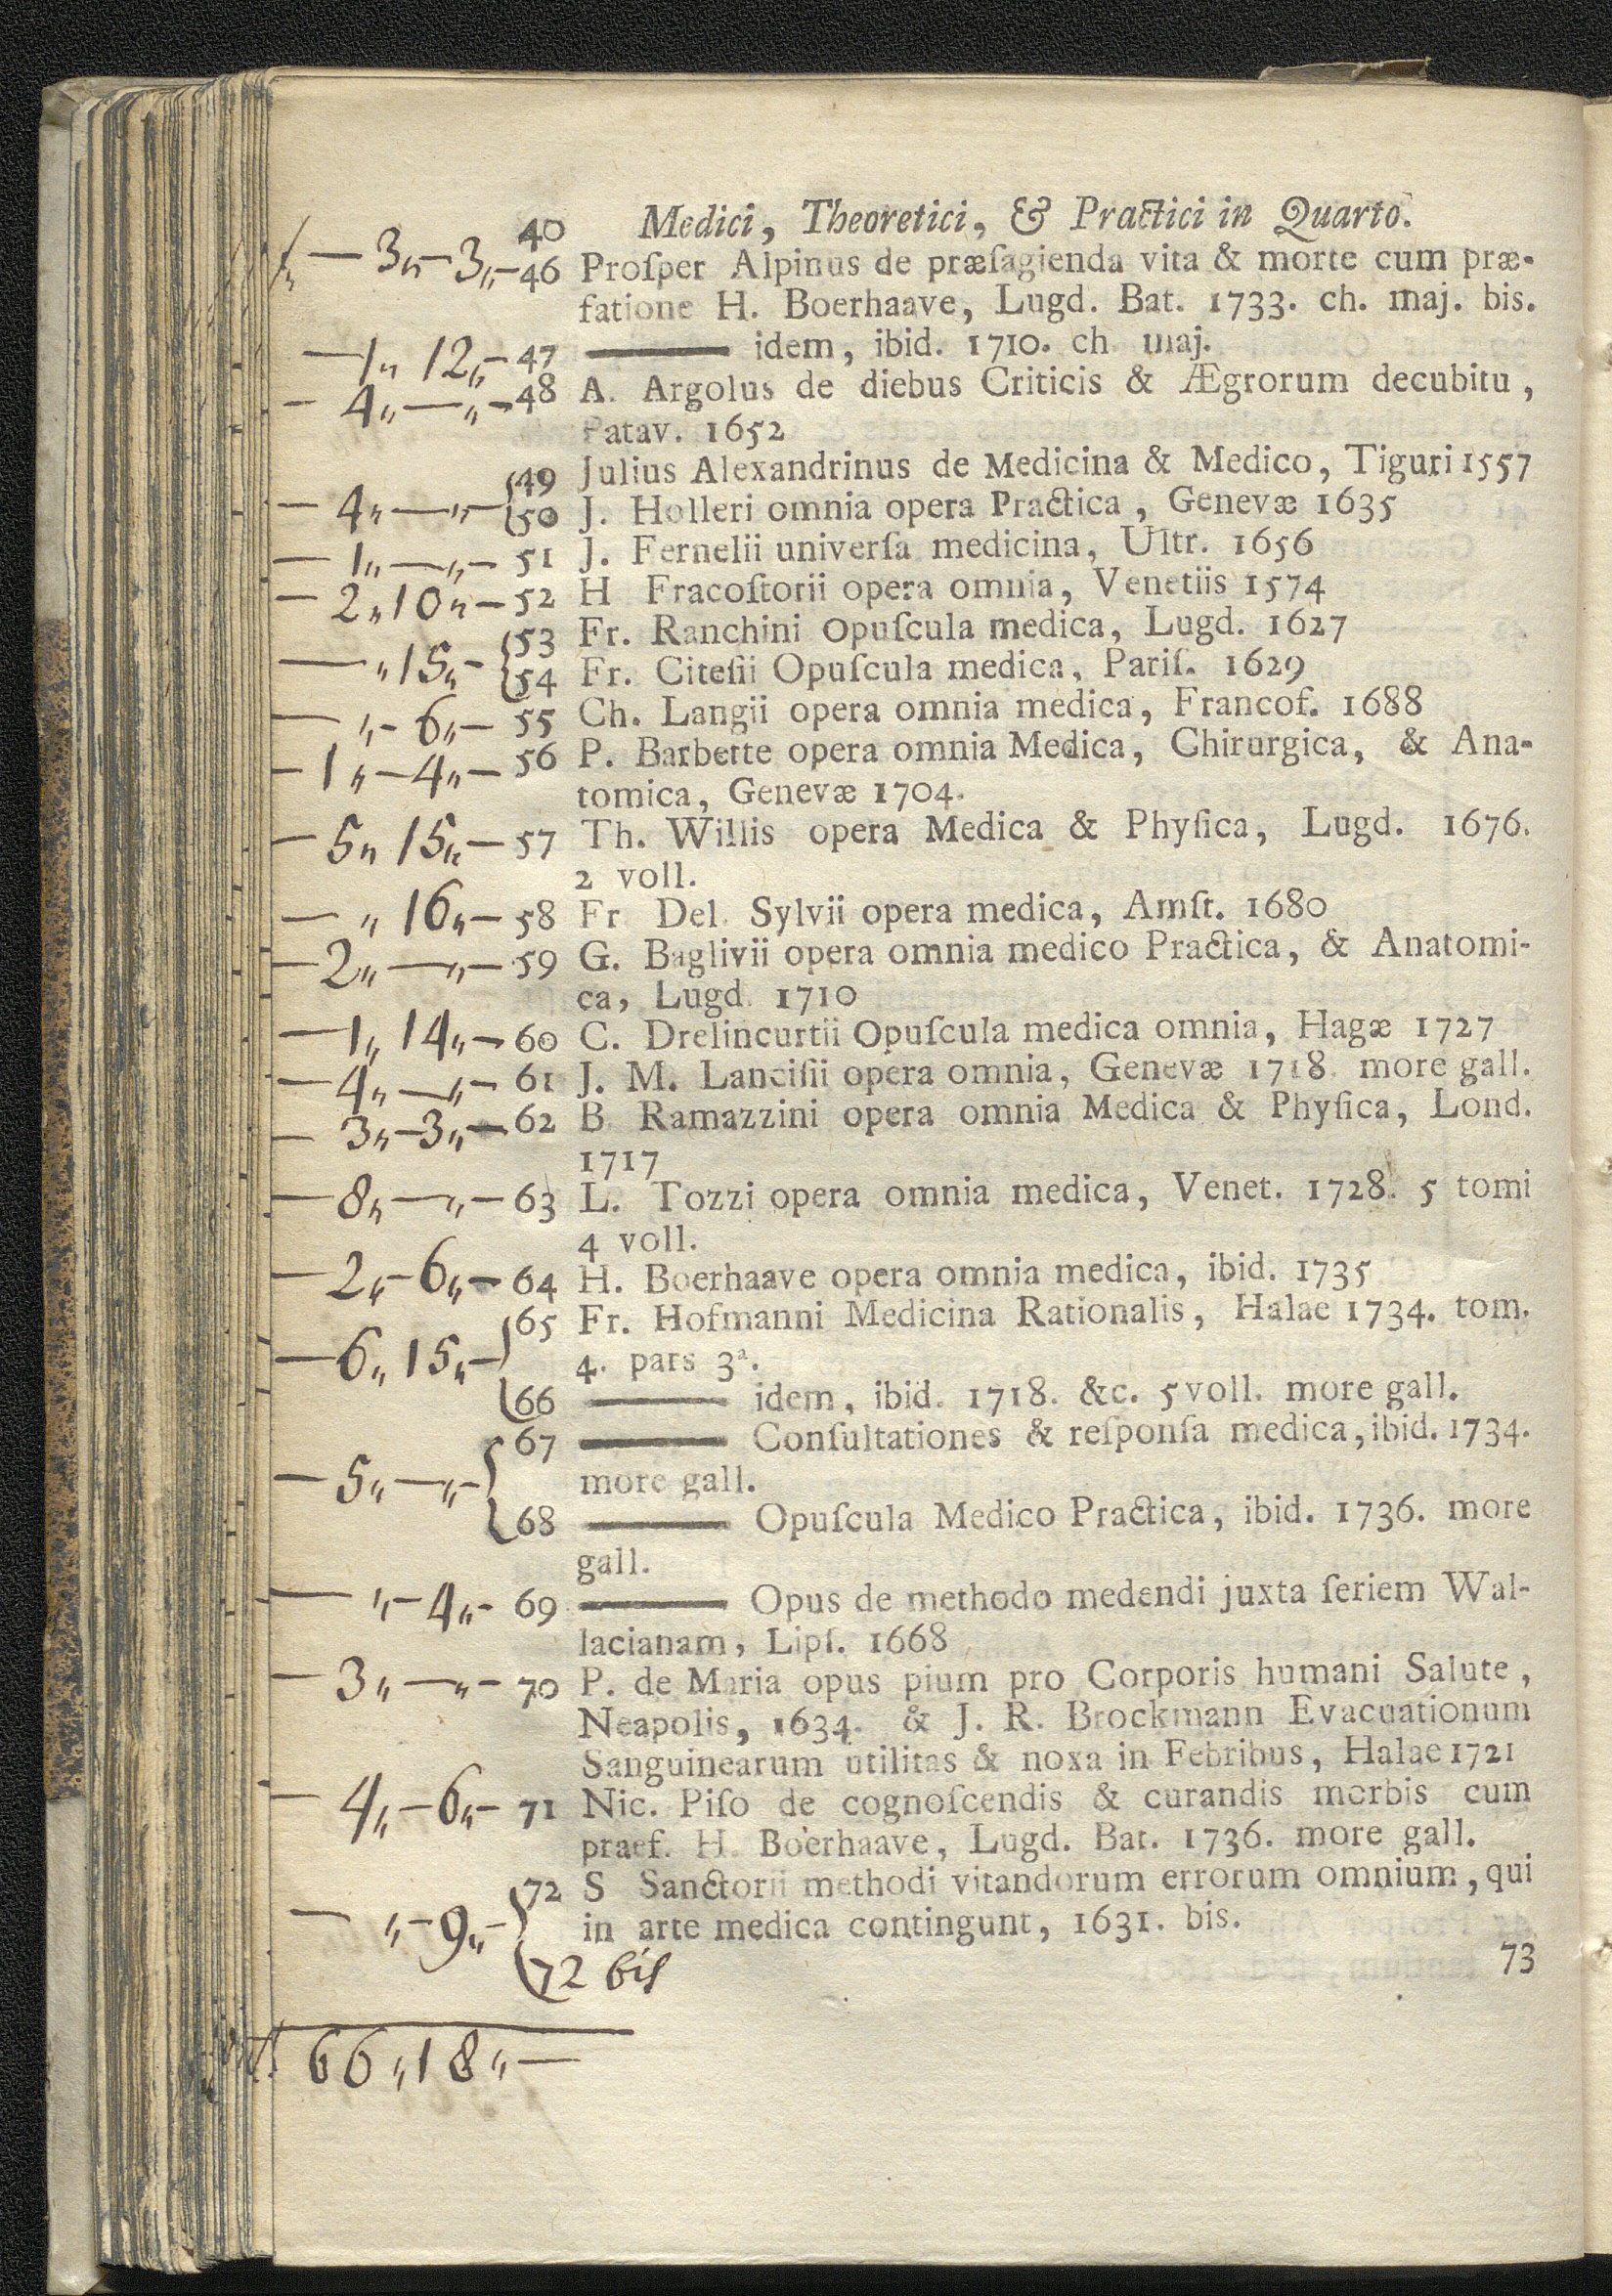 40 Medici, Theoretici, & Practici in Quarto.
— 3,,- 3,,- 46 Proſper Alpinus de præſagienda vita & morte cum præ-
fatione H. Boerhaave, Lugd. Bat. 1733. ch. maj. bis.
— 1,, 12,,- 47 ——— idem, ibid. 1710. ch maj.
— 4,,—,,- 48 A. Argolus de diebus Criticis & Ægrorum decubitu,
Patav. 1652
49 Julius Alexandrinus de Medicina & Medico, Tiguri 1557
— 4,,—,,- 50 J. Holleri omnia opera Practica, Genevæ 1635
— 1,,—,,- 51 J. Fernelii univerſa medicina, Ultr. 1656
— 2,,10,,- 52 H Fracoſtorii opera omnia, Venetiis 1574
53 Fr. Ranchini Opuſcula medica, Lugd. 1627
— ,,15,,- 54 Fr. Citeſii Opuſcula medica, Pariſ. 1629
— ,,- 6,,- 55 Ch. Langii opera omnia medica, Francof. 1688
— 1,,-4,,- 56 P. Barbette opera omnia Medica, Chirurgica, & Ana-
tomica, Genevæ 1704.
— 5,, 15,,- 57 Th. Willis opera Medica & Phyſica, Lugd. 1676.
2 voll.
— ,, 16,,- 58 Fr Del. Sylvii opera medica, Amſt. 1680
— 2,,—,,- 59 G. Baglivii opera omnia medico Practica, & Anatomi-
ca, Lugd. 1710
— 1,, 14,,- 60 C. Drelincurtii Opuſcula medica omnia, Hagæ 1727
— 4,,—,,- 61 J. M. Lanciſii opera omnia, Genevæ 1718. more gall.
— 3,,-3,,- 62 B Ramazzini opera omnia Medica & Phyſica, Lond.
1717
— 8,,—,,- 63 L. Tozzi opera omnia medica, Venet. 1728. 5 tomi
4 voll.
— 2,,-6,,- 64 H. Boerhaave opera omnia medica, ibid. 1735
65 Fr. Hofmanni Medicina Rationalis, Halae 1734. tom.
— 6,, 15,,- 4. pars 3ª.
66 ——— idem, ibid. 1718. &c. 5 voll. more gall.
67 ——— Conſultationes & reſponſa medica, ibid. 1734.
— 5,,—,,- more gall.
68 ——— Opuſcula Medico Practica, ibid. 1736. more
gall.
— ,,-4,,- 69 ——— Opus de methodo medendi juxta ſeriem Wal-
lacianam, Lipſ. 1668
— 3,,—,,- 70 P. de Maria opus pium pro Corporis humani Salute,
Neapolis, 1634. & J. R. Brockmann Evacuationum
Sanguinearum utilitas & noxa in Febribus, Halae 1721
— 4,,-6,,- 71 Nic. Piſo de cognoſcendis & curandis morbis cum
praef. H. Boerhaave, Lugd. Bat. 1736. more gall.
72 S Sanctorii methodi vitandorum errorum omnium, qui
— ,,-9,,- in arte medica contingunt, 1631. bis.
72 bis
73
66,,18,,—